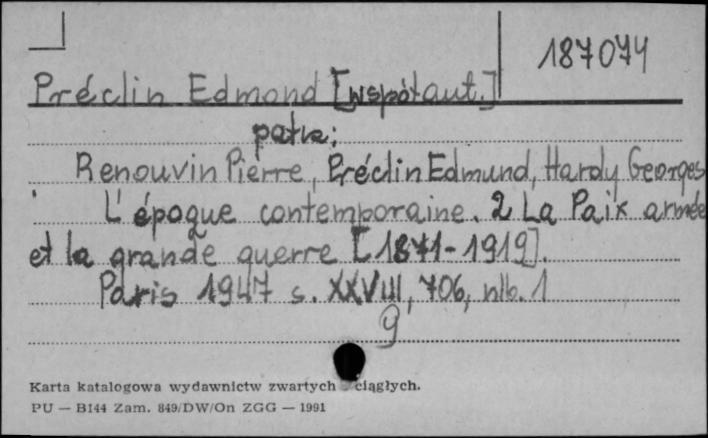 187074
Préclin Edmond [współaut.]
patrz:
Renouvin Pierre, Préclin Edmund, Hardy Georges
L'époque contemporaine. 2 La Paix armée
et la grande guerre [1871-1919].
Paris 1947 s. XXVIII, 706, nlb. 1
g
Karta katalogowa wydawnictw zwartych ciągłych.
PU — B144 Zam. 849/DW/On ZGG — 1991